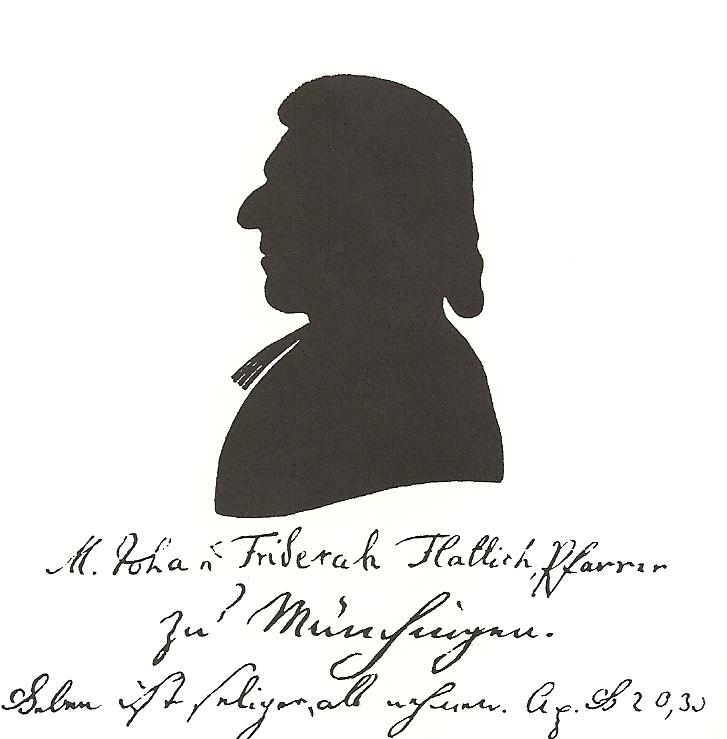 M. Johañ Friderich Flattich, Pfarrer
zu Münchingen.
Geben ist seliger, als nehmen. Ap. G 20,35